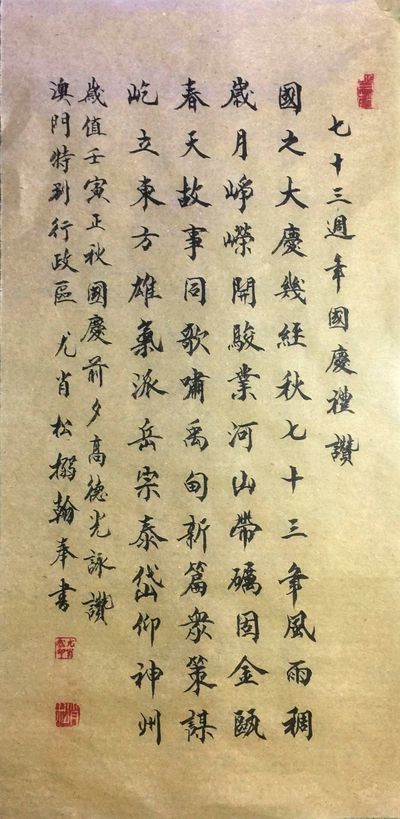 七十三週年國慶禮讚
國之大慶幾經秋七十三年風雨稠
歲月崢嶸開駿業河山帶礪固金甌
春天故事同歌嘯禹甸新篇眾策謀
屹立東方雄氣派岳宗泰岱仰神州
歲值壬寅正秋國慶前夕高德光詠讚
澳門特別行政區尤肖松搦翰奉書